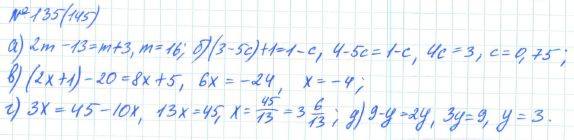 №135(145)
а) 2m - 13 = m + 3, m = 16; б) (3 - 5c) + 1 = 1 - c, 4 - 5c = 1 - c, 4c = 3, c = 0,75;
в) (2x + 1) - 20 = 8x + 5, 6x = -24, x = -4;
г) 3x = 45 - 10x, 13x = 45, x = 45/13 = 3 6/13; д) 9 - y = 2y, 3y = 9, y = 3.